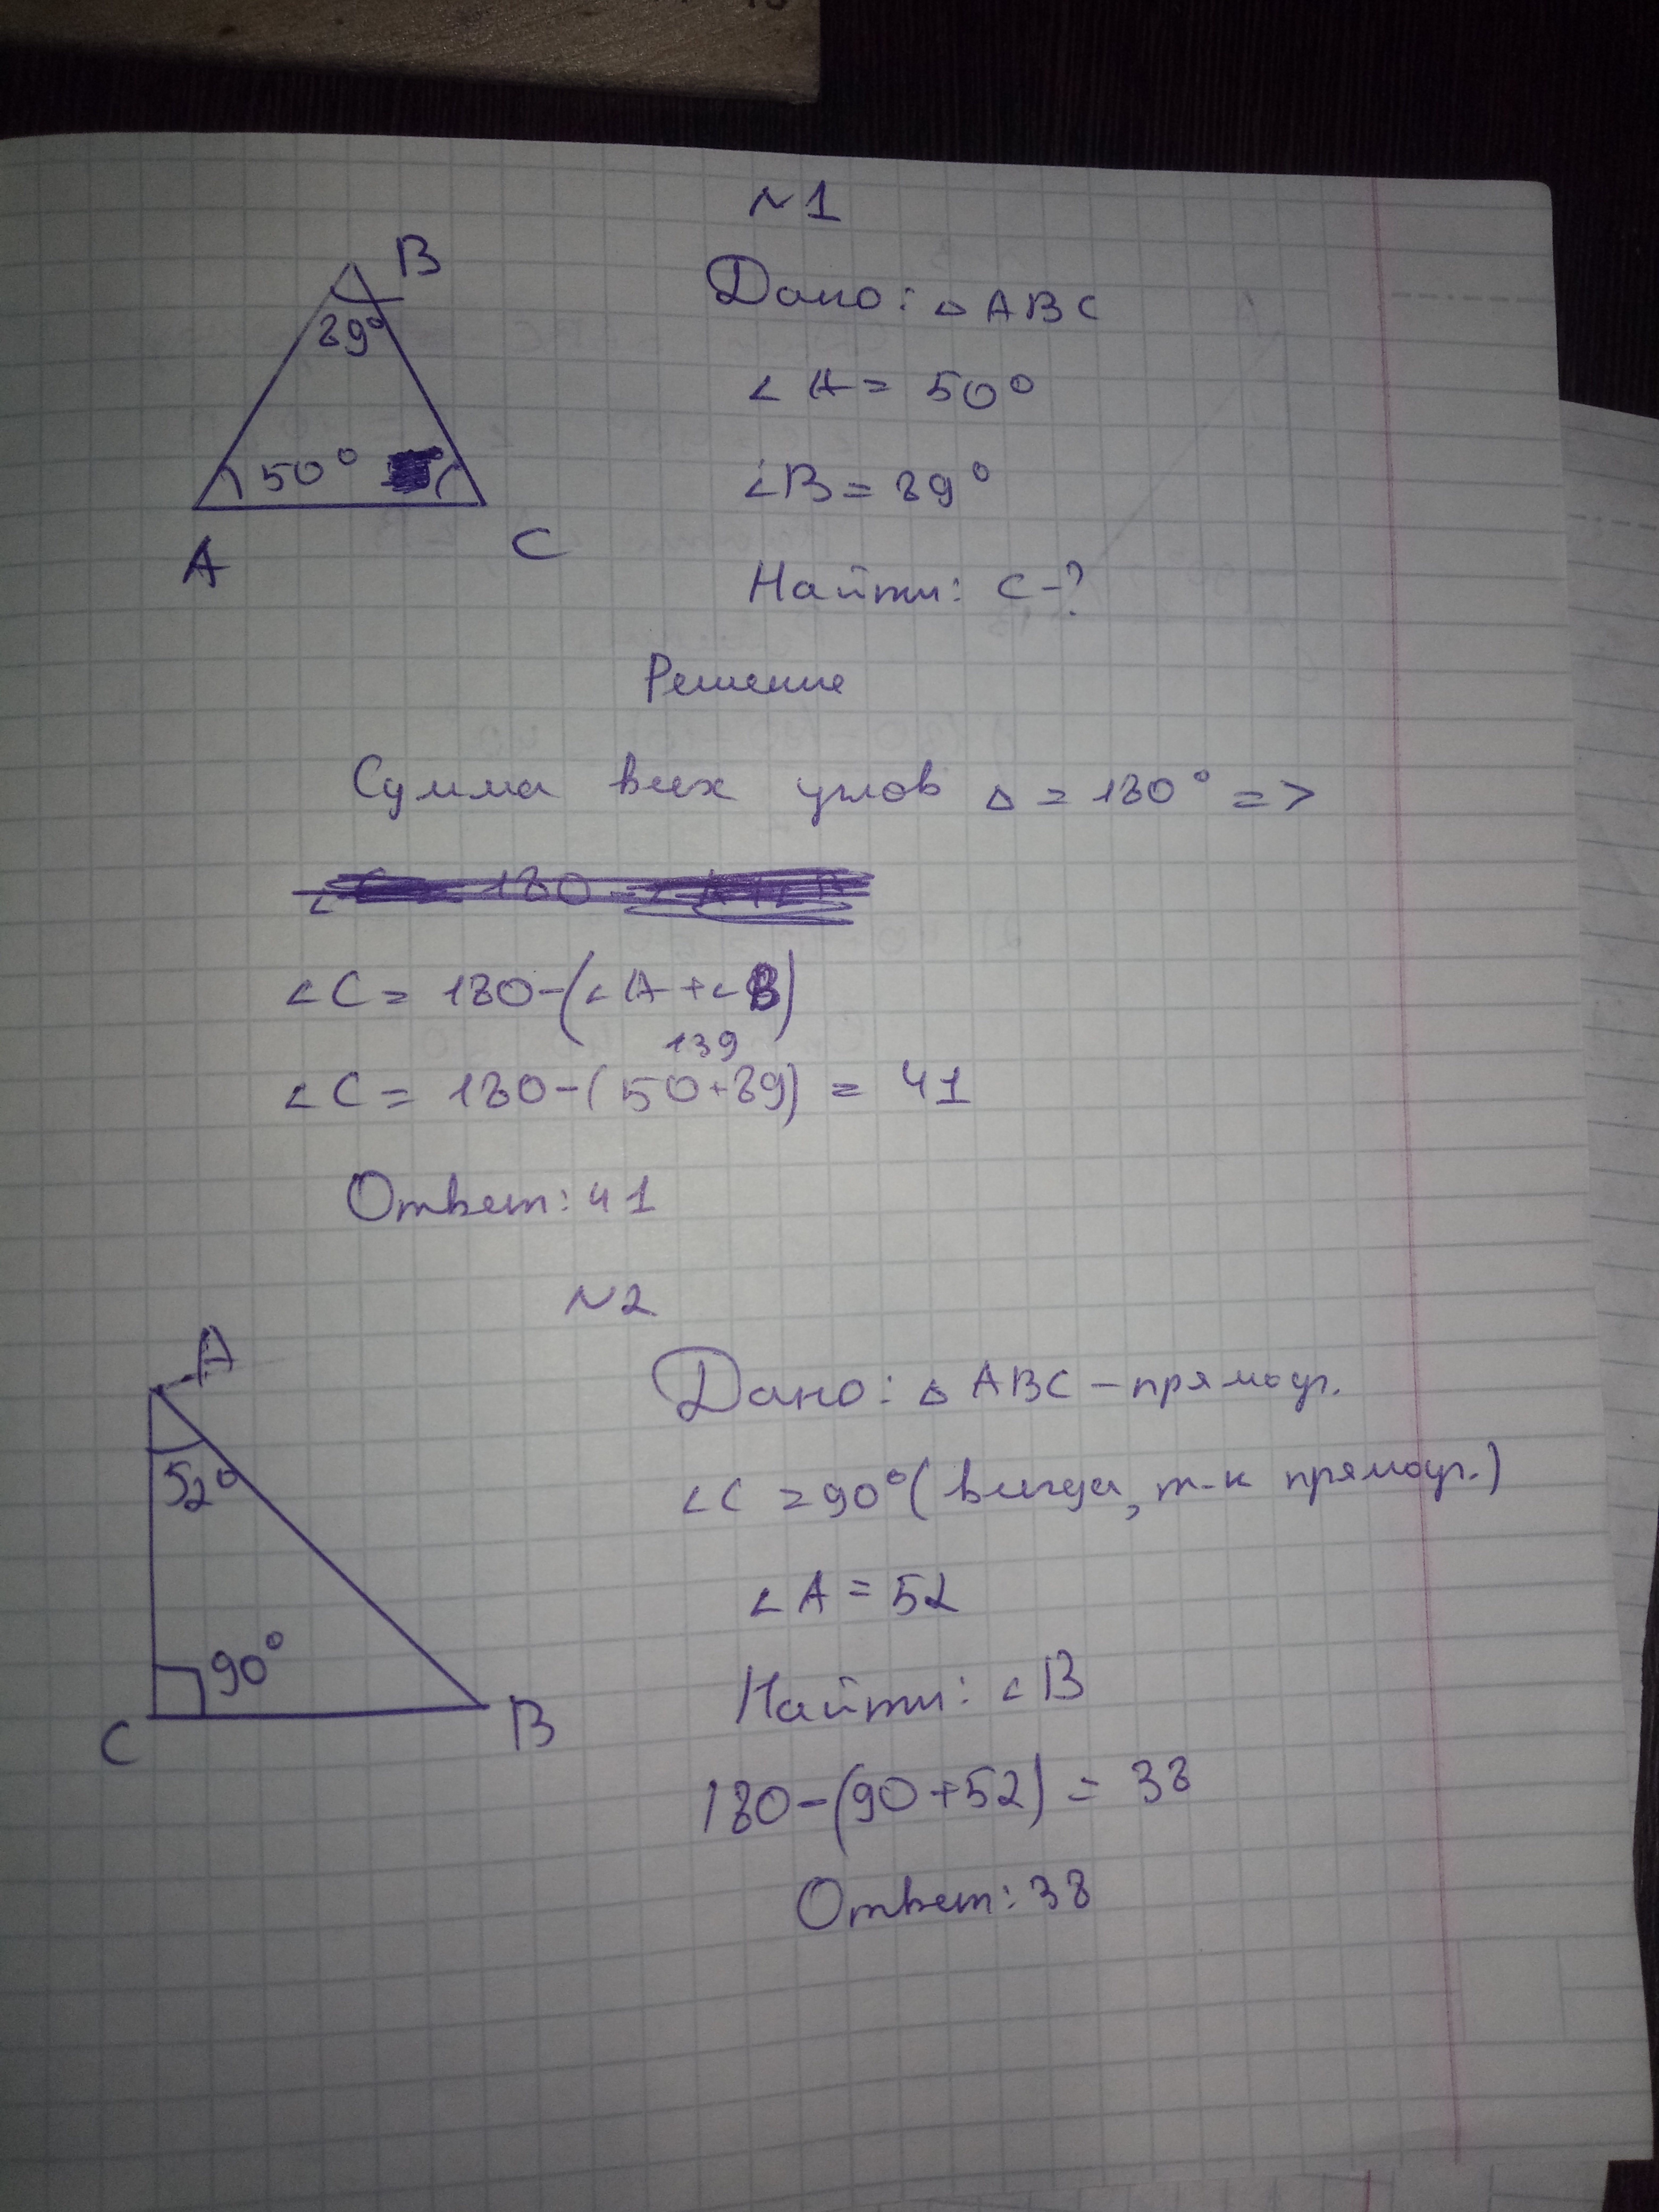 N1
B
Дано: △ ABC
89°
∠ A = 50°
50°
∠B = 89°
A
C
Найти: C-?
Решение
Сумма всех углов △ = 180° =>
∠C = 180-(∠A+∠B)
139
∠C = 180-(50+89) = 41
Ответ: 41
N2
A
Дано: △ ABC – прямоуг.
52°
∠C = 90° (всегда, т-к прямоуг.)
∠A = 52
90°
Найти: ∠B
C
B
180-(90+52) = 38
Ответ: 38